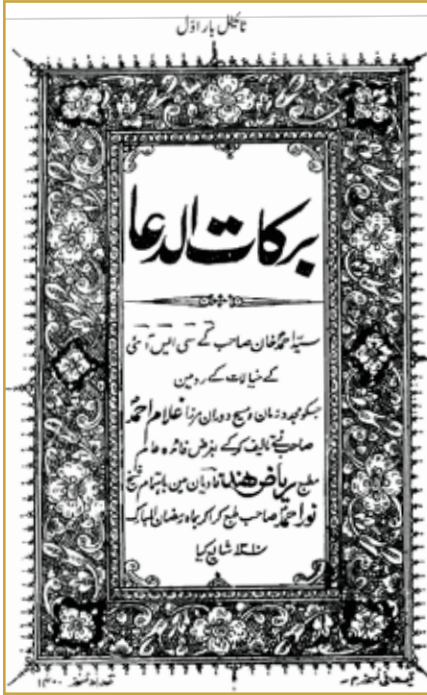 ٹائٹل بار اوّل
برکات الدعا
سید احمد خان صاحب کے سی ایس آئی
کے خیالات کے رد مین
جسکو مجدد زمان و مسیح دوران مرزا غلام احمد
صاحب نے تالیف کر کے بغرض فائدہ عام
مطبع ریاض ہند قادیان مین باہتمام شیخ
نور احمد صاحب طبع کرا کر بماہ رمضان المبارک
شایع کیا
قیمت فی نسخہ
تعداد نسخہ ۱۴۰۰